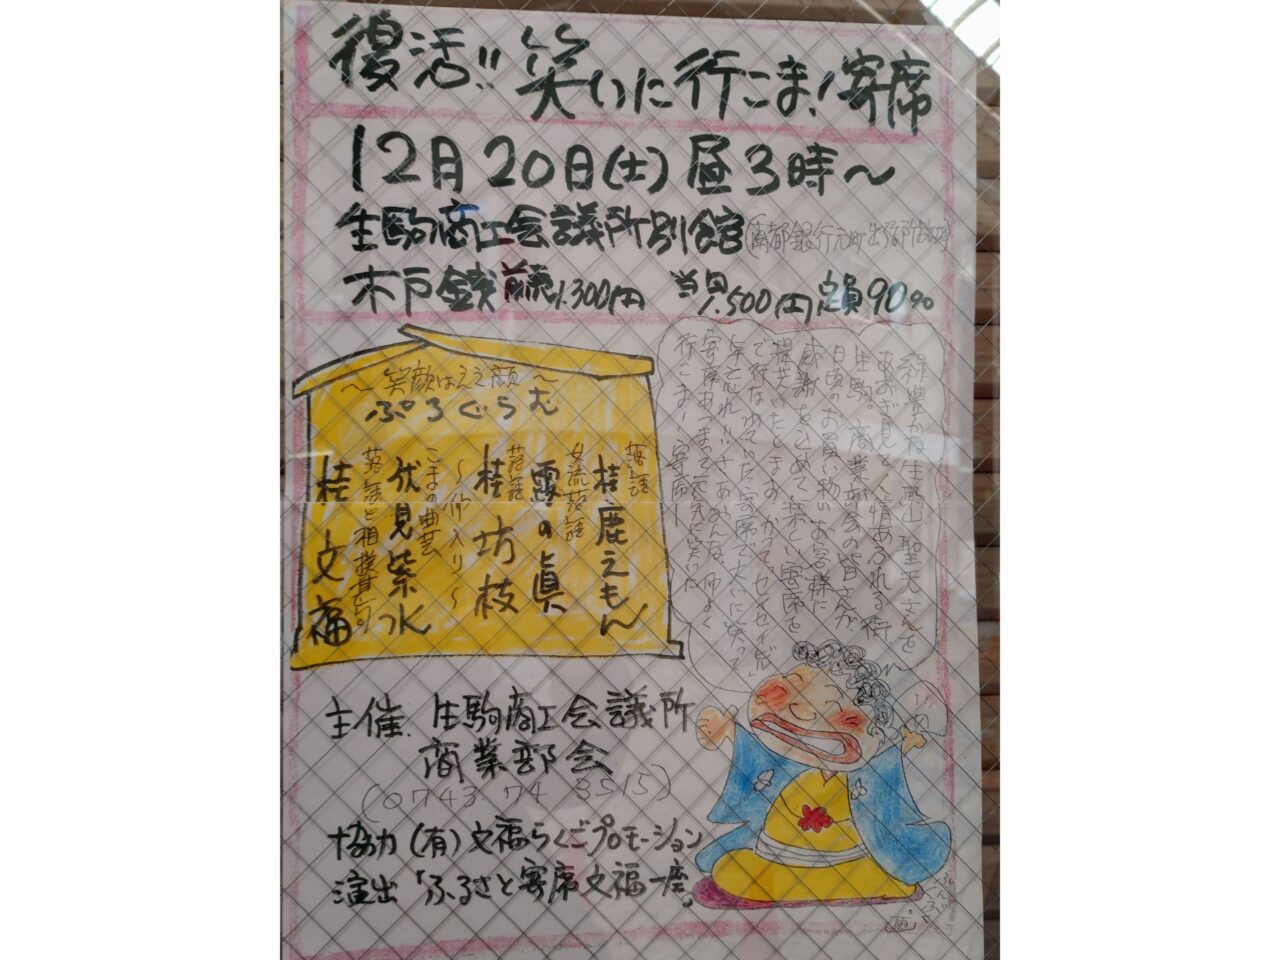 復活!! 笑いに行こま!寄席
12月20日(土)昼3時〜
生駒商工会議所別館(南都銀行元町出張所
木戸銭 前売1.300円 当日1.500円 定員90名
〜笑顔はええ顔〜
ぷろぐらむ
落語
桂 鹿えもん
女流落語
露の眞
落語
桂 坊枝
〜仲入り〜
こまの曲芸
伏見紫水
落語と相撲甚句
桂 文福
緑豊かな生駒山 聖天さんを
あおぎ見る、情あふれる街
生駒。商業部会の皆さんが
日頃のお買い物のお客様に
感謝をこめて楽しい寄席を
提供いたします。かつて「セイセイビル」
で行なわれていた寄席で大いに笑って
年忘れ!! さあみんな仲よく
寄席あつまって元気に笑いに
行こまー寄席ー
主催.生駒商工会議所
商業部会
(0743.74 3515)
協力(有)文福らくごプロモーション
演出「ふるさと寄席文福一座」